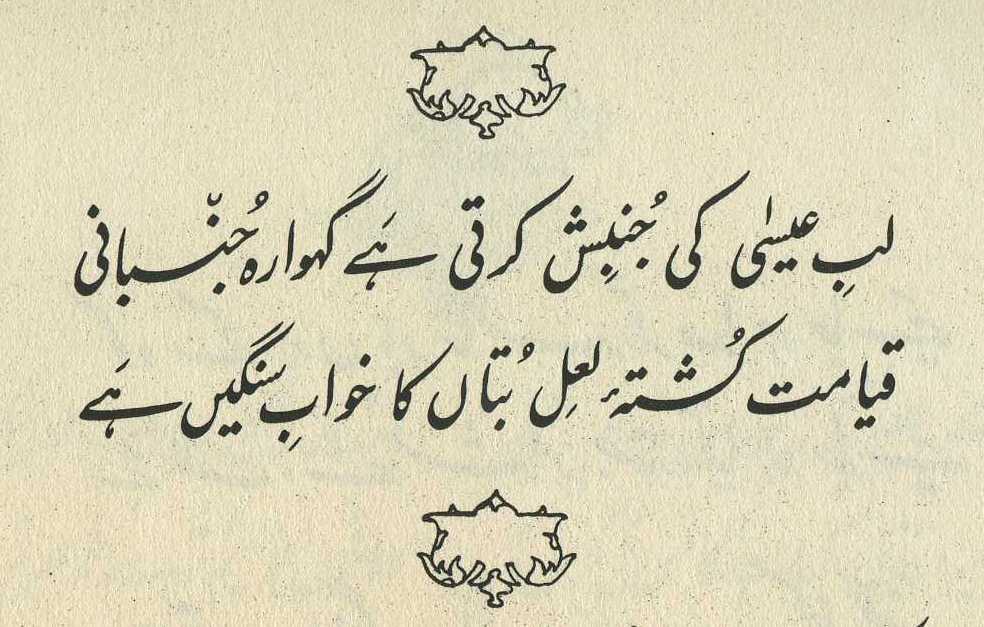 لبِ عیسٰی کی جُنبِش کرتی ہَے گہوارہ جُنّبانی
قیامت کُشتۂ لعلِ بُتاں کا خوابِ سنگیں ہَے